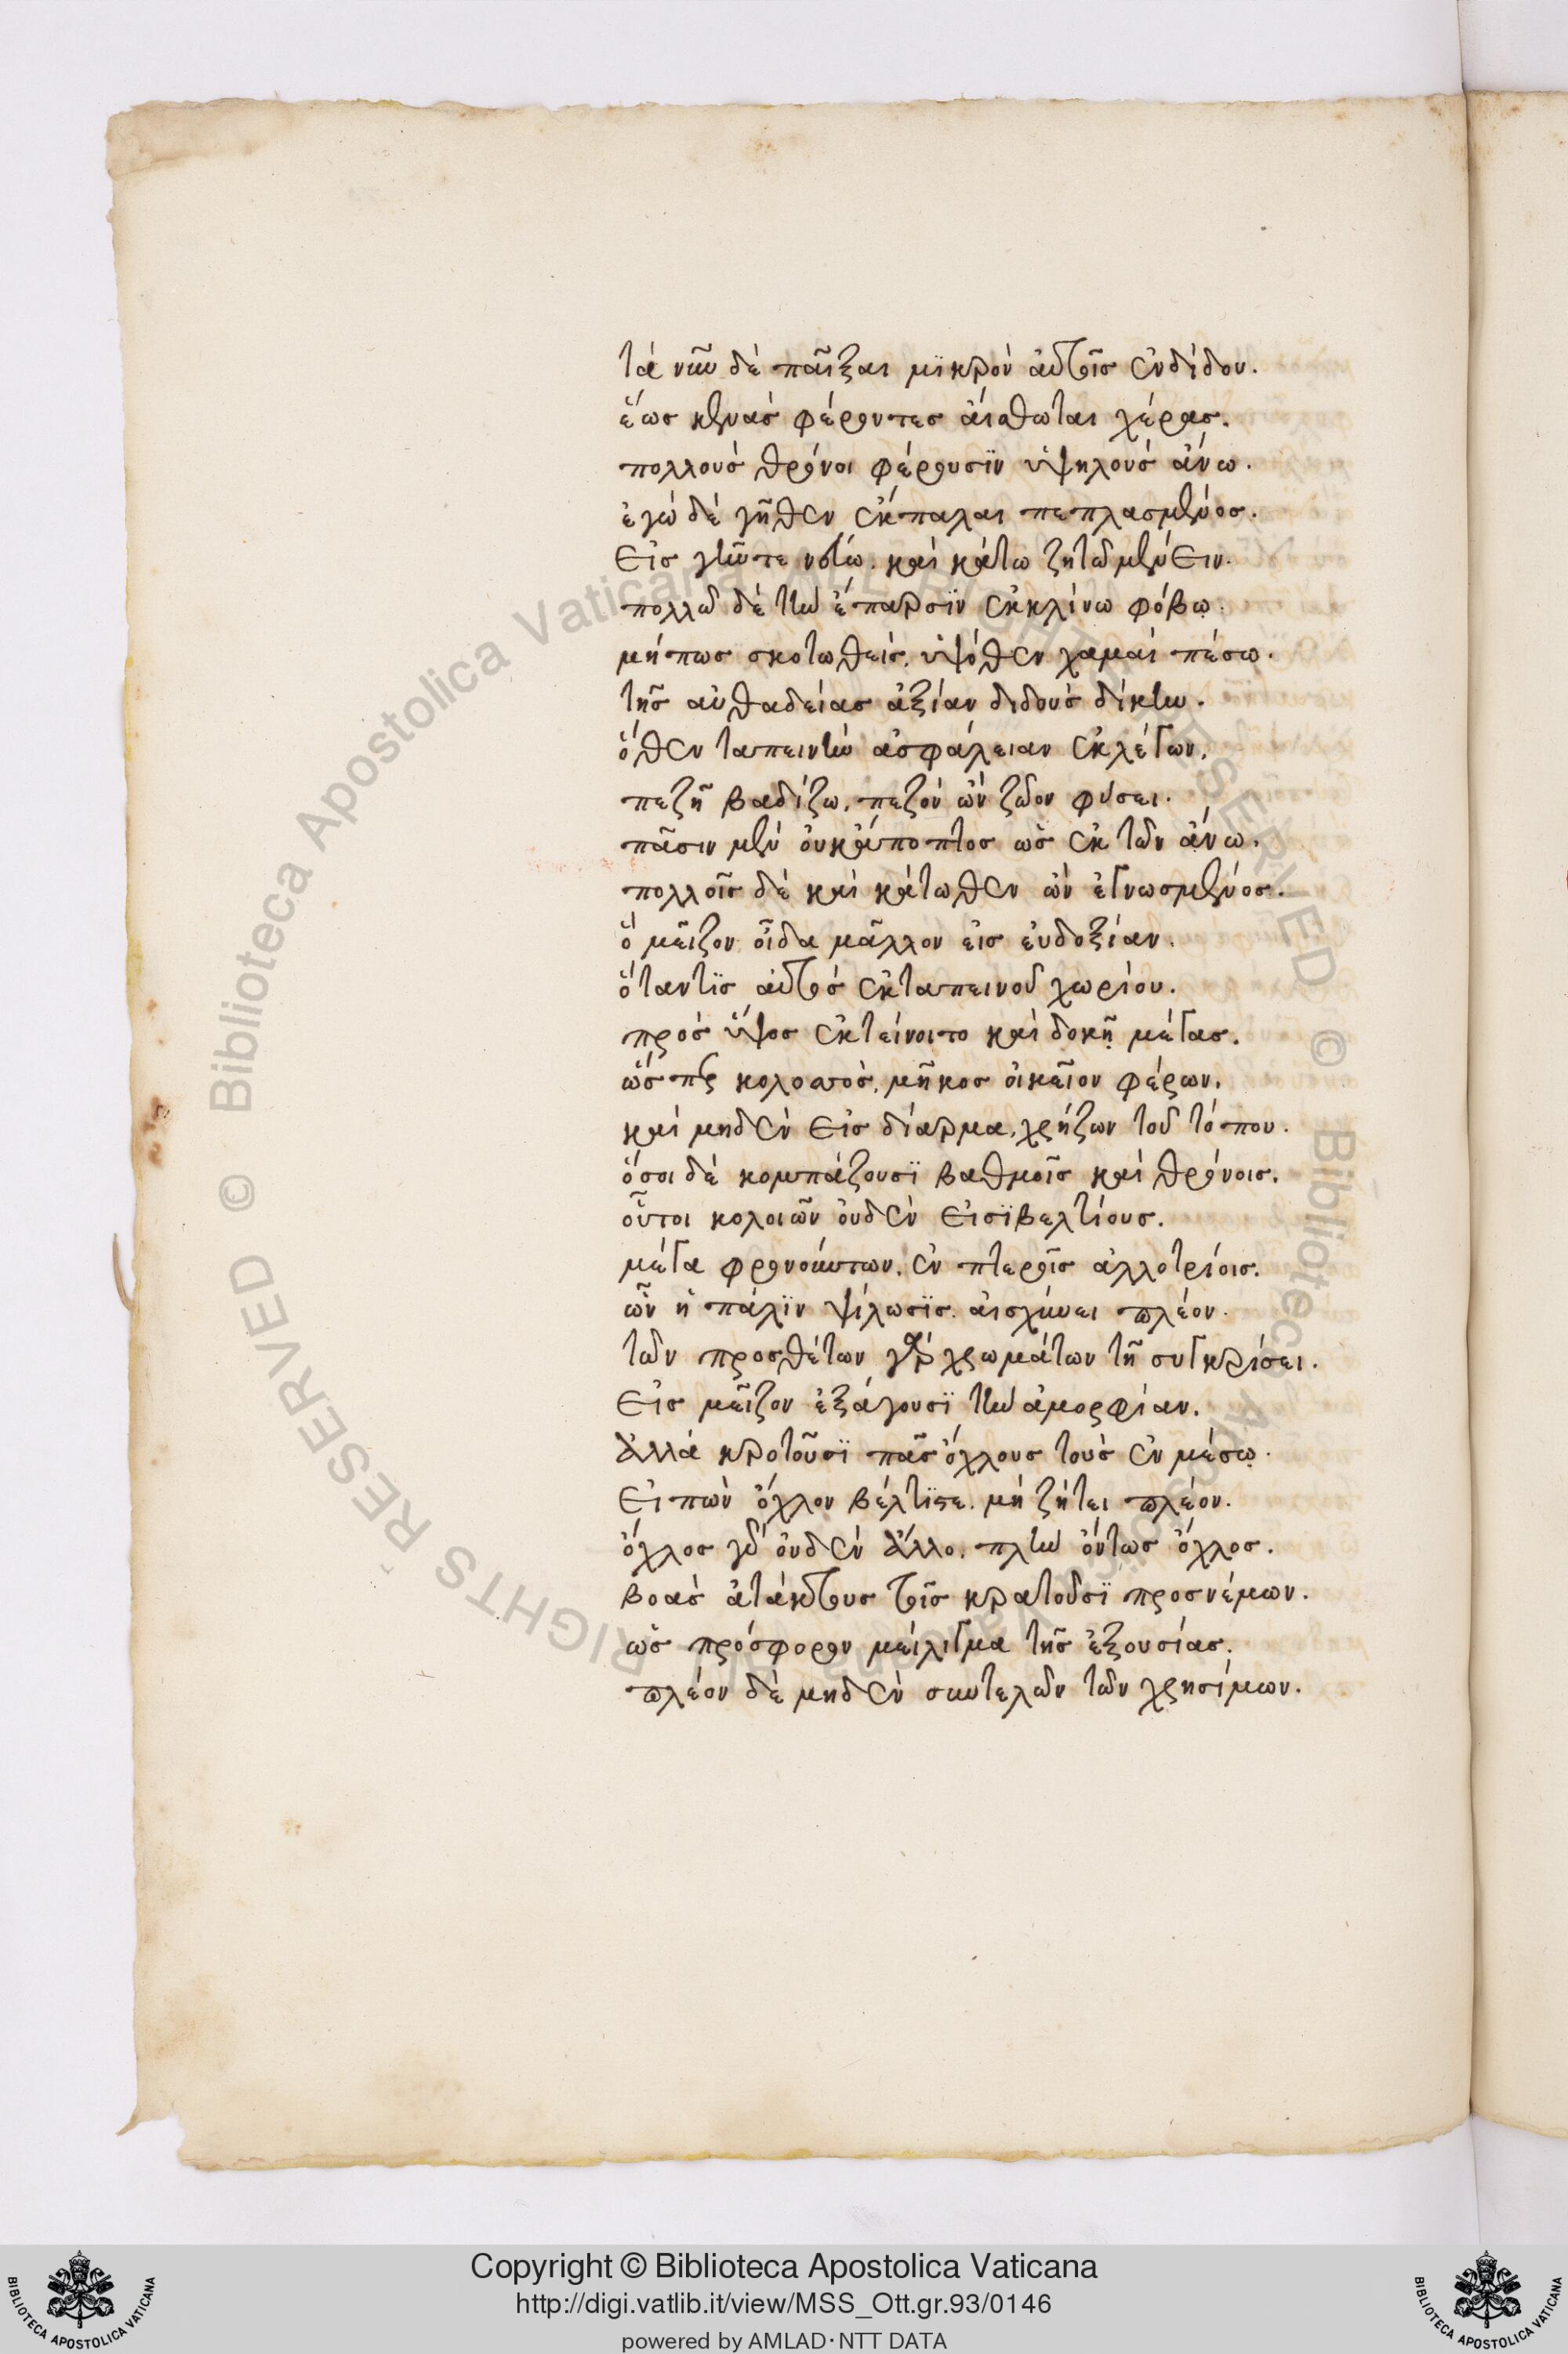 τὰ νῦν δὲ παῖξαι μϊκρὸν αὐτοῖς ἐνδίδου.
ἕως κενὰς φέροντες αἴσθωται χέρας.
πολλοὺς θρόνοι φέρουσϊν ὑψηλοὺς ἄνω.
ἐγὼ δὲ γῆθεν ἔκπαλαι πεπλασμένος.
εἰς γῆν τε νοστῶ. καὶ κάτω ζητῶ μένειν.
πολλῶ δὲ τὴν ἔπαρσϊν ἐκκλίνω φόβω.
μήπως σκοτωθεὶς, ὑψόθεν χαμαὶ πέσω.
τῆς αὐθαδείας ἀξίαν διδοὺς δίκην.
ὅθεν ταπεινὴν ἀσφάλειαν ἐκλέγων,
πεζῆ βαδίζω, πεζὸν ὢν ζῶον φύσει.
πᾶσιν μὲν οὐκ ἄποπτος ὡς ἐκ τῶν ἄνω.
πολλοῖς δὲ καὶ κάτωθεν ὢν ἐγνωσμένος.
ὃ μεῖζον οἶδα μᾶλλον εἰς εὐδοξίαν.
ὅταν τϊς αὐτὸς ἐκ ταπεινοῦ χωρίου.
πρὸς ὕψος ἐκτείνοιτο καὶ δοκῇ μέγας.
ὥσπερ κολοσσὸς, μῆκος οἰκεῖον φέρων,
καὶ μηδὲν εἰς δίαρμα, χρήζων τοῦ τόπου.
ὅσοι δὲ κομπάζουσϊ βαθμοῖς καὶ θρόνοις,
οὗτοι κολοιῶν οὐδὲν εἰσϊ βελτίους.
μέγα φρονούντων, ἐν πτεροῖς ἀλλοτρίοις.
ὧν ἡ πάλϊν ψίλωσϊς αἰσχύνει πλέον.
τῶν προσθέτων γὰρ χρωμάτων τῆ συγκρίσει.
εἰς μεῖζον ἐξάγουσϊ τὴν ἀμορφίαν.
Ἀλλὰ κροτοῦσϊ πᾶς ὄχλους τοὺς ἐν μέσῳ.
εἰπὼν ὄχλον βέλτϊστε, μὴ ζήτει πλέον.
ὄχλος γὰρ οὐδὲν ἄλλο, πλὴν ὄντως ὄχλος.
βοὰς ἀτάκτους τοῖς κρατοῦσϊ προσνέμων.
ὡς πρόσφορον μείλιγμα τῆς ἐξουσίας.
πλέον δὲ μηδὲν συντελῶν τῶν χρησίμων.
Copyright © Biblioteca Apostolica Vaticana
http://digi.vatlib.it/view/MSS_Ott.gr.93/0146
powered by AMLAD·NTT DATA